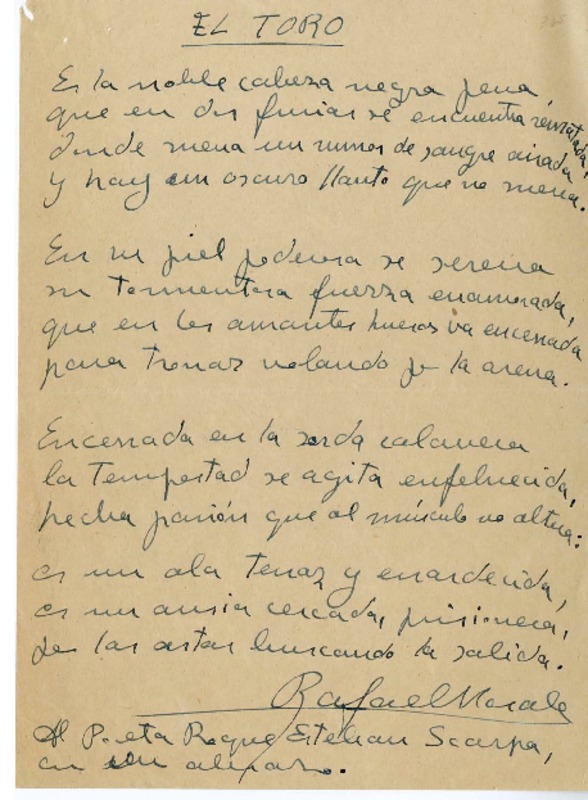 EL TORO
Es la noble cabeza negra pena,
que en dos furias se encuentra rematada,
donde suena un rumor de sangre airada
y hay un oscuro llanto que no suena.
En su piel poderosa se serena
su tormentosa fuerza enamorada,
que en los amantes huesos va encerrada
para tronar volando por la arena.
Encerrada en la sorda calavera
la tempestad se agita enfebrecida,
hecha pasión que al músculo no altera:
es un ala tenaz y enardecida,
es un ansia cercada, prisionera,
por las astas buscando la salida.
Rafael Morales
Al Poeta Roque Esteban Scarpa,
con un abrazo.